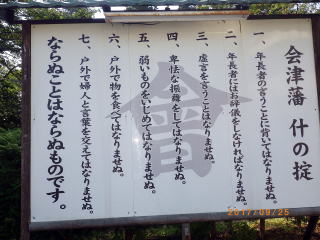 会津藩 什の掟
一、年長者の言うことに背いてはなりませぬ。
二、年長者にはお辞儀をしなければなりませぬ。
三、虚言を言うことはなりませぬ。
四、卑怯な振舞をしてはなりませぬ。
五、弱いものをいじめてはなりませぬ。
六、戸外で物を食べてはなりませぬ。
七、戸外で婦人と言葉を交えてはなりませぬ。
ならぬことはならぬものです。
會
2017/09/25